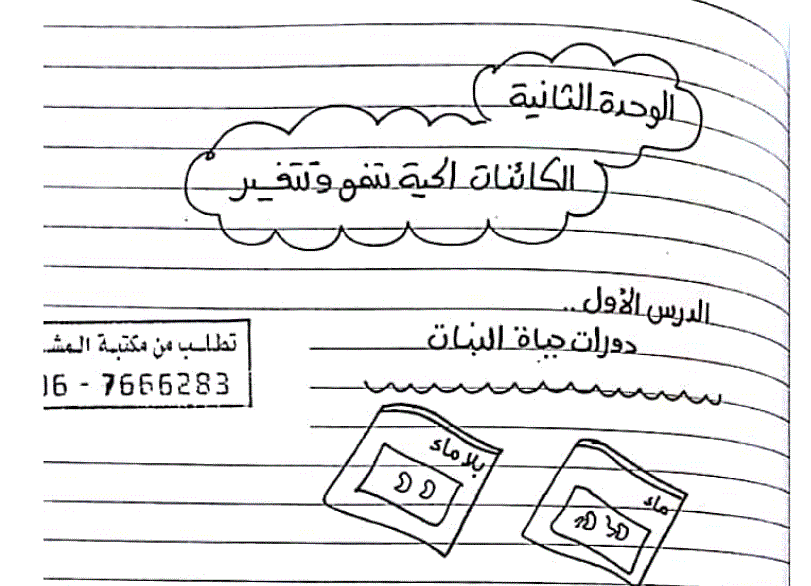 الوحدة الثانية
الكائنات الحية تنمو وتتغير
الدرس الأول ..
دورات حياة النبات
تطلب من مكتبة
06 - 7666283
بلا ماء
ماء